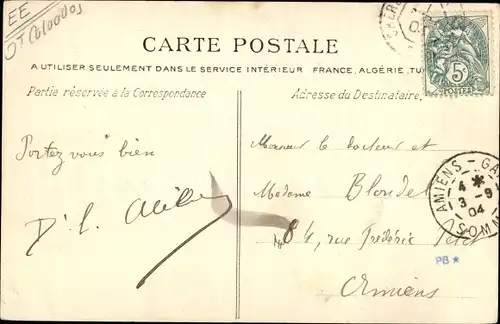 EE
CARTE POSTALE
A UTILISER SEULEMENT DANS LE SERVICE INTÉRIEUR FRANCE, ALGÉRIE, TU
Partie réservée à la Correspondance
Adresse du Destinataire,
5c
POSTES
Portez vous bien
Monsieur le docteur et
Madame Blondel
84, rue Frédéric Petit
Amiens
AMIENS - GA
4 *
3 - 9
04
SOMM
PB *